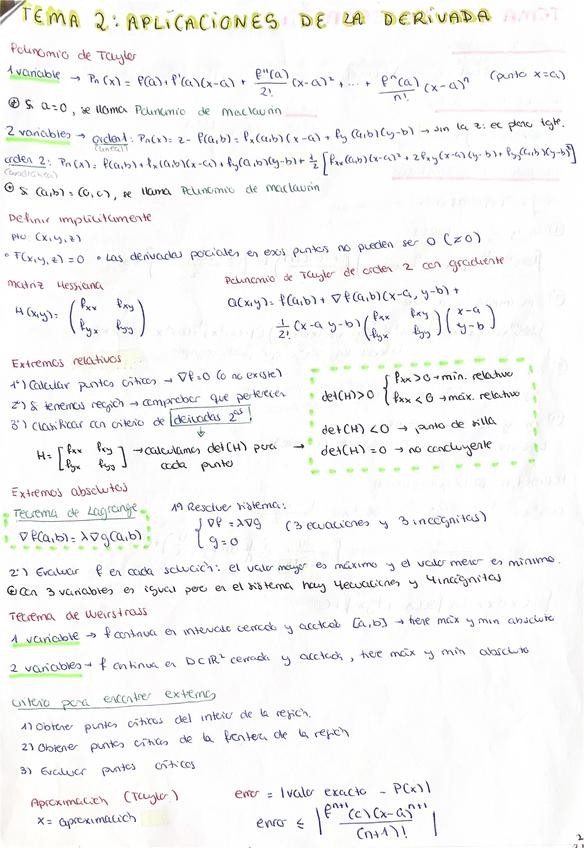 TEMA 2: APLICACIONES DE LA DERIVADA
Polinomio de Taylor
1 variable → Pn(x) = f(a) + f'(a)(x-a) + f''(a)/2! (x-a)² + ... + fⁿ(a)/n! (x-a)ⁿ (punto x=a)
Si a=0, se llama Polinomio de Maclaurin
2 variables → orden 1: Pn(x) = z - f(a,b) = fx(a,b)(x-a) + fy(a,b)(y-b) → sin la z: ec plano tgte.
(lineal)
orden 2: Pn(x) = f(a,b) + fx(a,b)(x-a) + fy(a,b)(y-b) + 1/2 [fxx(a,b)(x-a)² + 2fxy(x-a)(y-b) + fyy(a,b)(y-b)²]
(cuadrática)
Si (a,b) = (0,0), se llama Polinomio de Maclaurin
Definir implícitamente
pto (x,y,z)
• F(x,y,z) = 0 • Las derivadas parciales en esos puntos no pueden ser 0 (≠0)
Matriz Hessiana
H(x,y) = (fxx fxy
fyx fyy)
Polinomio de Taylor de orden 2 con gradiente
Q(x,y) = f(a,b) + ∇f(a,b)(x-a, y-b) +
1/2! (x-a y-b) (fxx fxy
fyx fyy) (x-a
y-b)
Extremos relativos
1º) Calcular puntos críticos → ∇f=0 (o no existe)
2º) Si tenemos región → comprobar que pertenecen
3º) Clasificar con criterio de derivadas 2ªs
H = [fxx fxy
fyx fyy] → calculamos det(H) para cada punto →
det(H) > 0 { fxx > 0 → mín. relativo
fxx < 0 → máx. relativo
det(H) < 0 → punto de silla
det(H) = 0 → no concluyente
Extremos absolutos
Teorema de Lagrange
∇f(a,b) = λ∇g(a,b)
1º) Resolver sistema:
{ ∇f = λ∇g
g = 0
(3 ecuaciones y 3 incógnitas)
2º) Evaluar f en cada solución: el valor mayor es máximo y el valor menor es mínimo.
Con 3 variables es igual pero en el sistema hay 4 ecuaciones y 4 incógnitas
Teorema de Weirstrass
1 variable → f continua en intervalo cerrado y acotado [a,b] → tiene máx y min absoluto
2 variables → f continua en D⊂ℝ² cerrado y acotado, tiene máx y min absoluto
Criterio para encontrar extremos
1) Obtener puntos críticos del interior de la región.
2) Obtener puntos críticos de la frontera de la región
3) Evaluar puntos críticos
Aproximación (Taylor)
x = aproximación
error = |valor exacto - P(x)|
error ≤ |fⁿ⁺¹(c)(x-a)ⁿ⁺¹/(n+1)!|
2